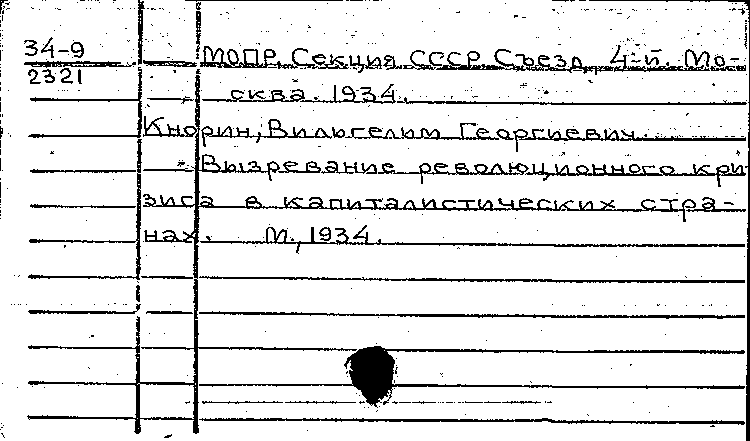 34-9
2321
МОПР. Секция СССР. Съезд, 4-й. Мо-
сква. 1934.
Кнорин, Вильгельм Георгиевич.
Вызревание революционного кри
зиса в капиталистических стра-
нах. М., 1934.